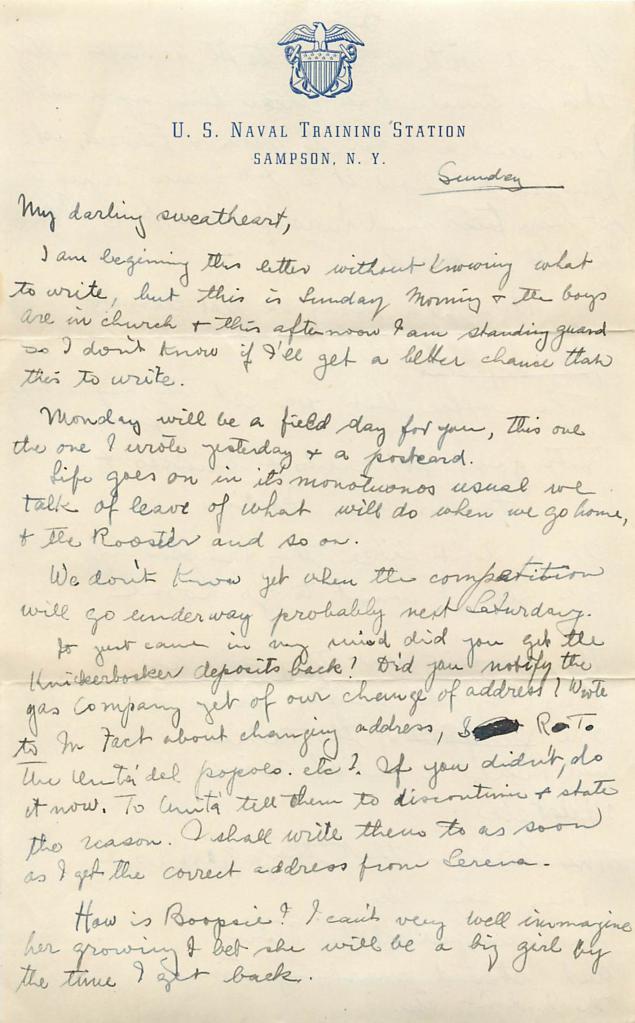 U. S. NAVAL TRAINING STATION
SAMPSON, N. Y.
Sunday
My darling sweatheart,
I am begining this letter without knowing what
to write, but this is Sunday Morning & the boys
are in church & this afternoon I am standing guard
so I don't know if I'll get a better chance than
this to write.
Monday will be a field day for you, this one
the one I wrote yesterday & a postcard.
Life goes on in it's monotuonos usual we
talk of leave of what will do when we go home,
& the Rooster and so on.
We don't know yet when the competition
will go underway probably next Saturday.
It just came in my mind did you get the
Knickerbocker deposits back? Did you notify the
gas Company yet of our change of address? Wrote
to In Fact about changing address, R.T.
The Unitá del popolo. etc?. If you didn't, do
it now. To Unitá tell them to discontinue & state
the reason. I shall write them to as soon
as I get the correct address from Serena.
How is Boopsie? I can't very well immagine
her growing I bet she will be a big girl by
the time I get back.